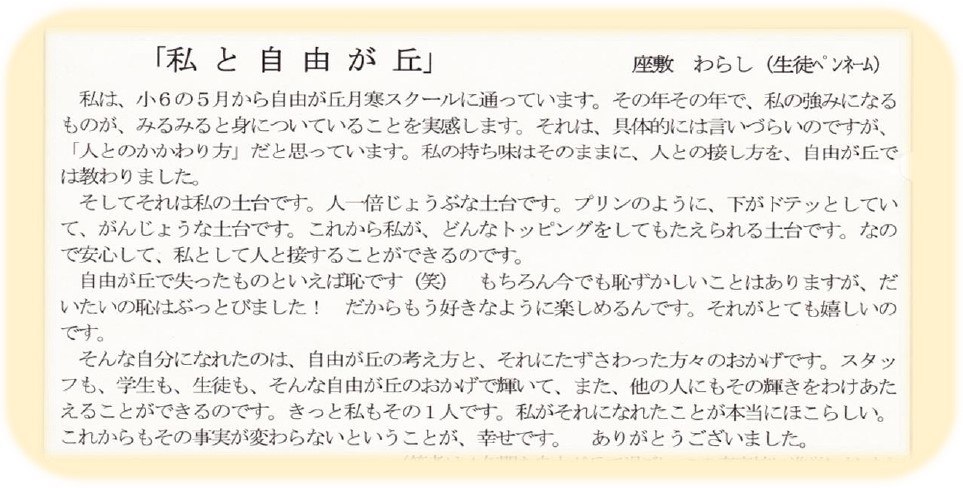 「私と自由が丘」 座敷　わらし（生徒ﾍﾟﾝﾈｰﾑ）
　私は、小６の５月から自由が丘月寒スクールに通っています。その年その年で、私の強みになる
ものが、みるみると身についていることを実感します。それは、具体的には言いづらいのですが、
「人とのかかわり方」だと思っています。私の持ち味はそのままに、人との接し方を、自由が丘で
は教わりました。
　そしてそれは私の土台です。人一倍じょうぶな土台です。プリンのように、下がドテッとしてい
て、がんじょうな土台です。これから私が、どんなトッピングをしてもたえられる土台です。なの
で安心して、私として人と接することができるのです。
　自由が丘で失ったものといえば恥です（笑）　もちろん今でも恥ずかしいことはありますが、だ
いたいの恥はぶっとびました！　だからもう好きなように楽しめるんです。それがとても嬉しいの
です。
　そんな自分になれたのは、自由が丘の考え方と、それにたずさわった方々のおかげです。スタッ
フも、学生も、生徒も、そんな自由が丘のおかげで輝いて、また、他の人にもその輝きをわけあた
えることができるのです。きっと私もその１人です。私がそれになれたことが本当にほこらしい。
これからもその事実が変わらないということが、幸せです。　ありがとうございました。